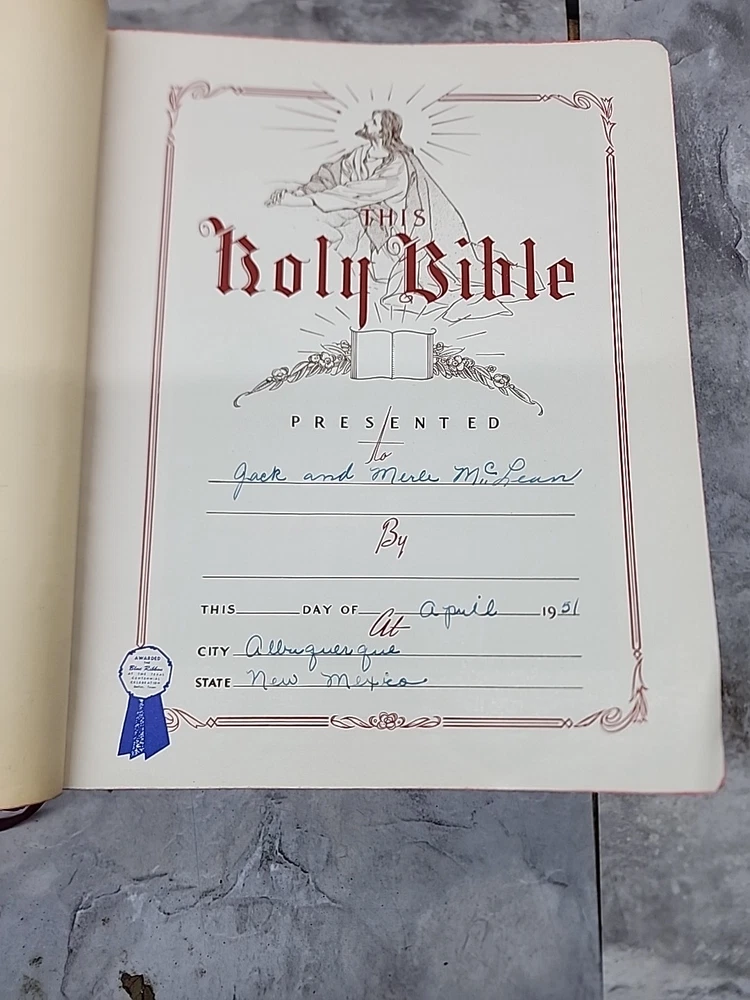 THIS
Holy Bible
PRESENTED
to
Jack and Merle McLean
By
THIS DAY OF April 1951
At
CITY Albuquerque
STATE New Mexico
AWARDED
THE
Blue Ribbon
AT THE TEXAS
CENTENNIAL
CELEBRATION
Dallas, Texas